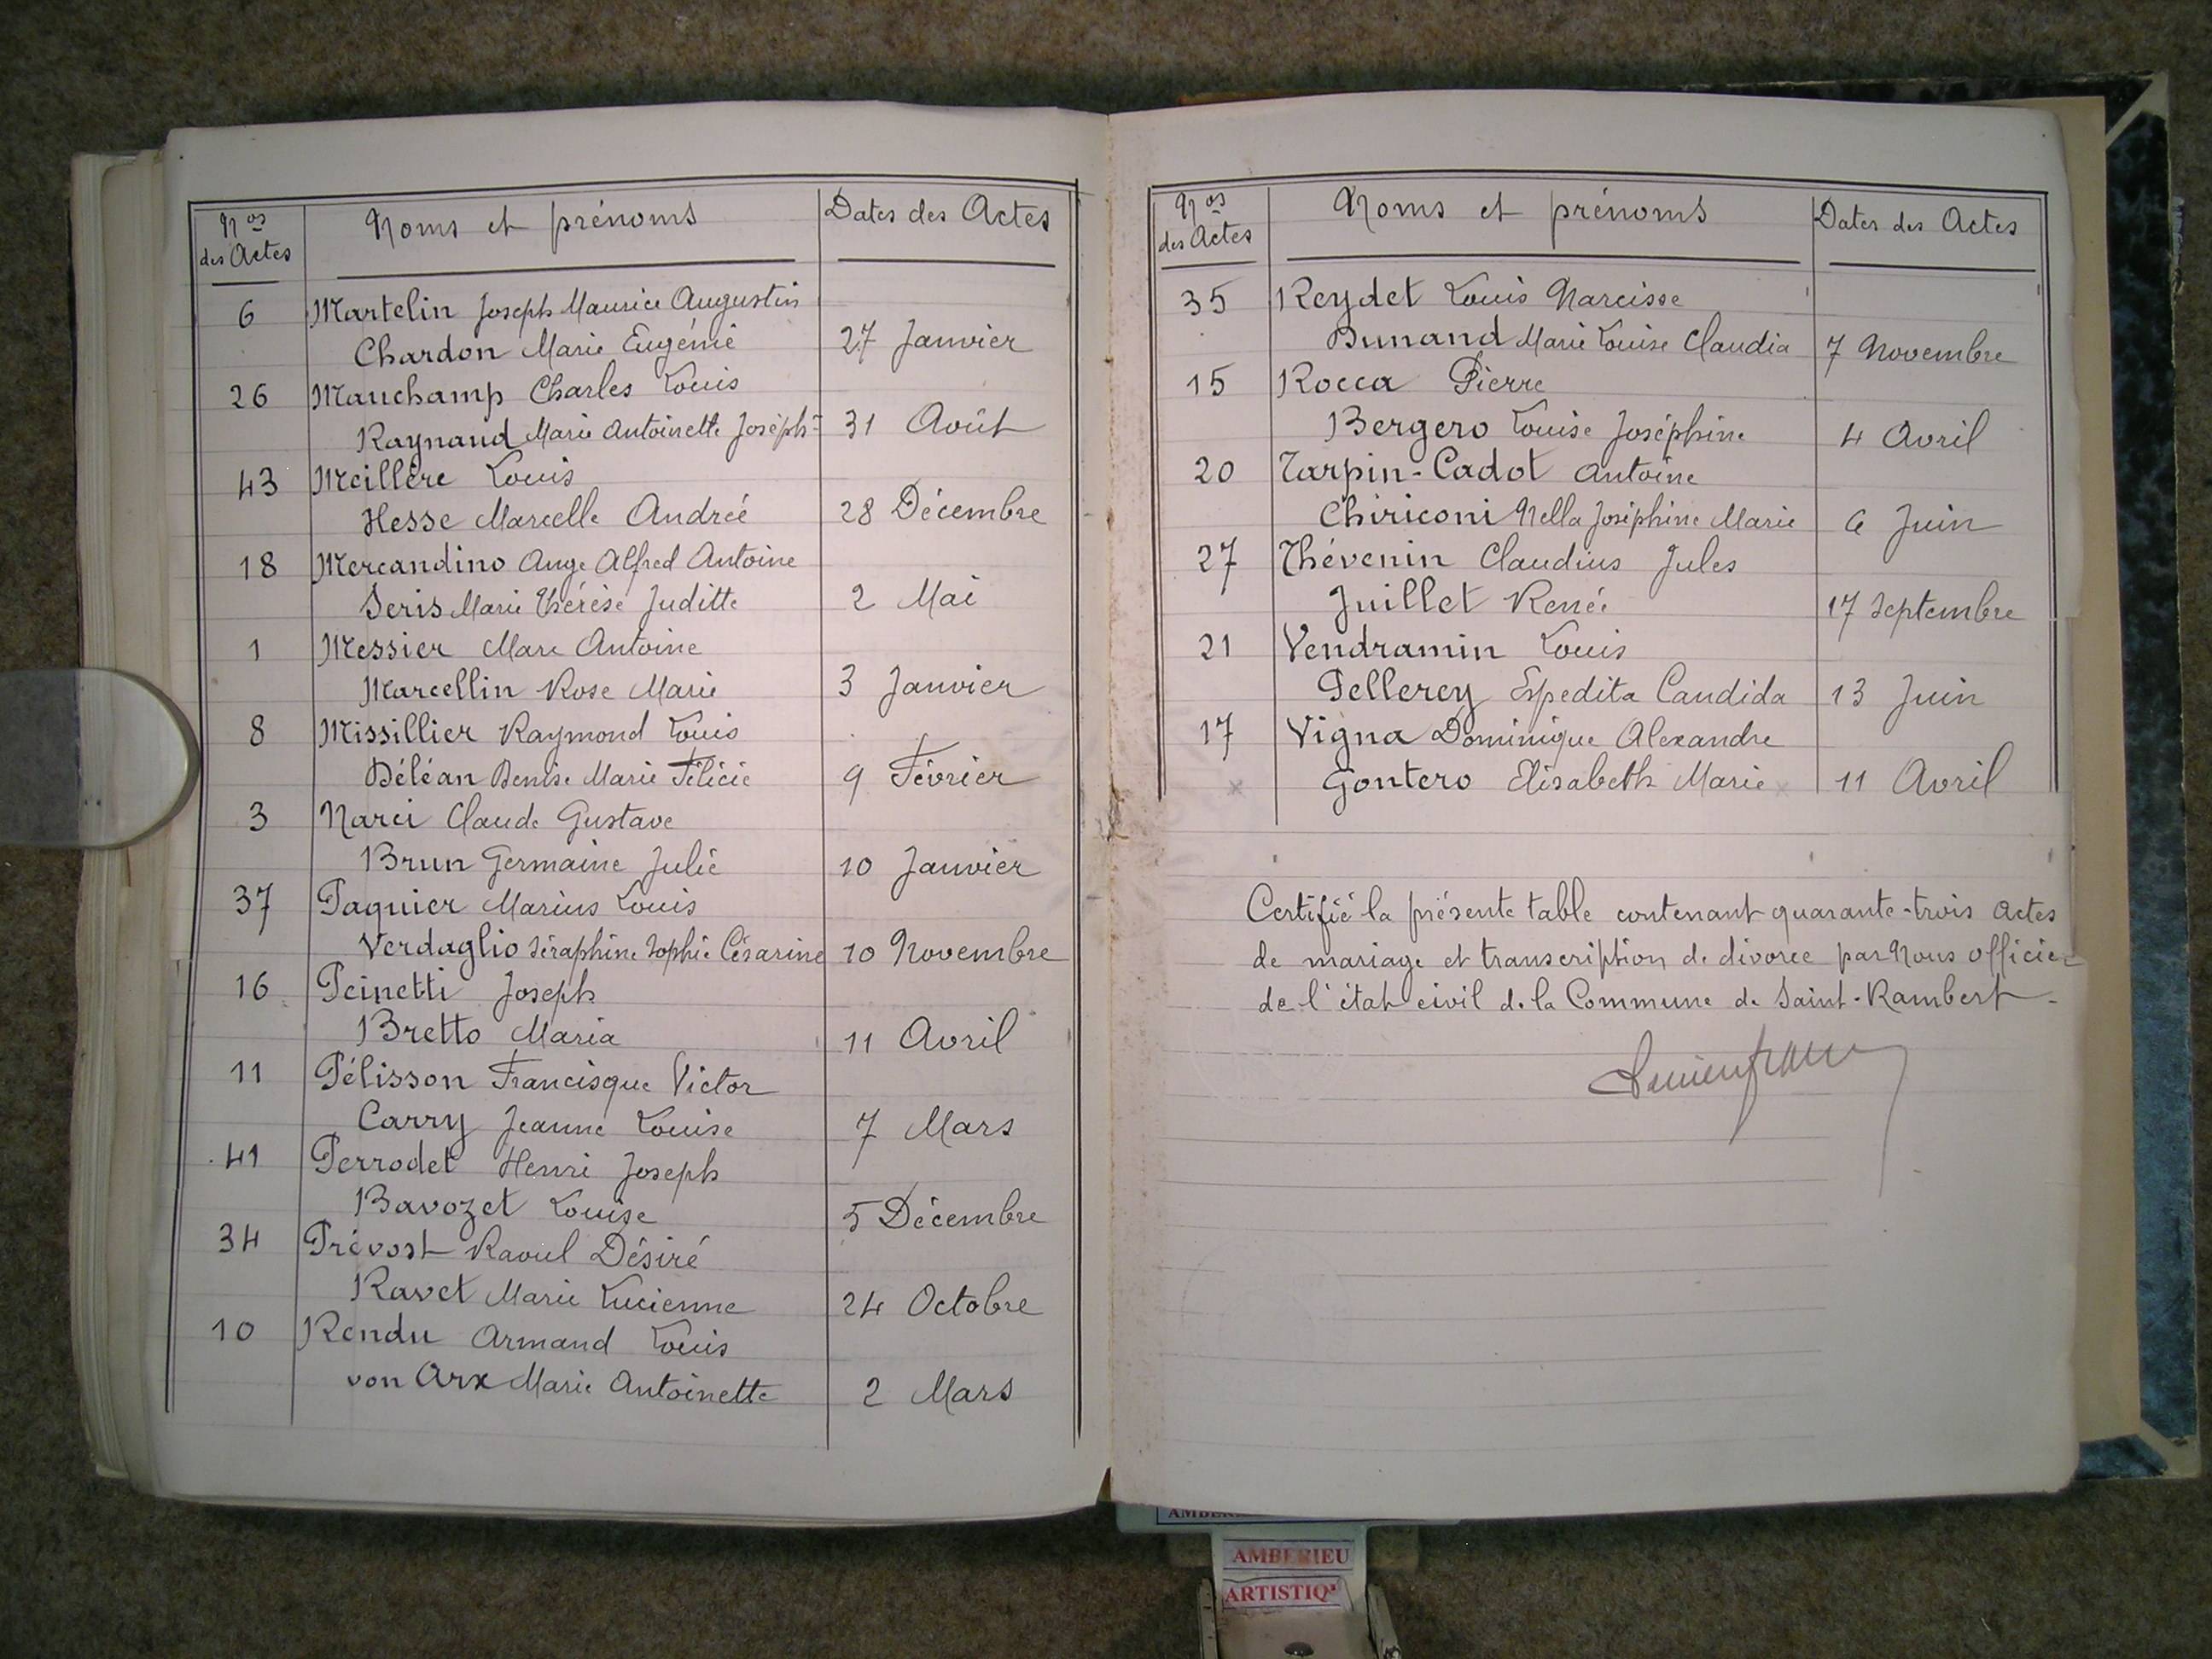 Nos des Actes Noms et prénoms Dates des Actes
6 Martelin Joseph Maurice Augustin
Chardon Marie Eugénie 27 Janvier
26 Mauchamp Charles Louis
Raynaud Marie Antoinette Joséph- 31 Août
43 Meillère Louis
Hesse Marcelle Andrée 28 Décembre
18 Mercandino Ange Alfred Antoine
Seris Marie Thérèse Juditte 2 Mai
1 Messier Marc Antoine
Marcellin Rose Marie 3 Janvier
8 Missillier Raymond Louis
Déléan Denise Marie Félicie 9 Février
3 Narci Claude Gustave
Brun Germaine Julie 10 Janvier
37 Paquier Marius Louis
Verdaglio Séraphine Sophie Césarine 10 Novembre
16 Peinetti Joseph
Bretto Maria 11 Avril
11 Pélisson Francisque Victor
Carry Jeanne Louise 7 Mars
41 Perrodet Henri Joseph
Bavozet Louise 5 Décembre
34 Prévost Raoul Désiré
Ravet Marie Lucienne 24 Octobre
10 Rendu Armand Louis
von Arx Marie Antoinette 2 Mars
Nos des Actes Noms et prénoms Dates des Actes
35 Reydet Louis Narcisse
Dunand Marie Louise Claudia 7 Novembre
15 Rocca Pierre
Bergero Louise Joséphine 4 Avril
20 Tarpin-Cadot Antoine
Chiriconi Nella Joséphine Marie 6 Juin
27 Thévenin Claudius Jules
Juillet Renée 17 Septembre
21 Vendramin Louis
Pellerey Espedita Candida 13 Juin
17 Vigna Dominique Alexandre
Gontero Elisabeth Marie 11 Avril
Certifié la présente table contenant quarante-trois actes
de mariage et transcription de divorce par Nous officier
de l'état civil de la Commune de Saint-Rambert-
AMBERIEU
ARTISTIQ